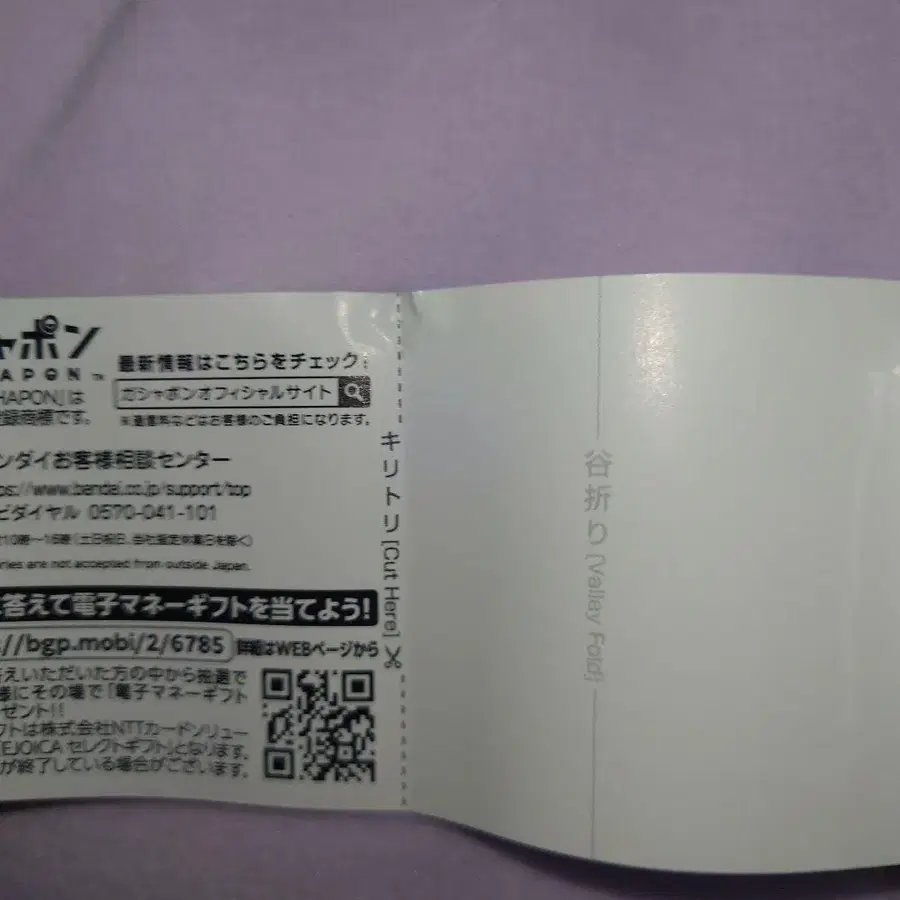 ャポン
APON™
HAPON」は
登録商標です。
最新情報はこちらをチェック!
ガシャポンオフィシャルサイト
※通信料などはお客様のご負担になります。
ンダイお客様相談センター
ps://www.bandai.co.jp/support/top
ビダイヤル 0570-041-101
10時～16時(土日祝日、当社指定休業日を除く)
ries are not accepted from outside Japan.
答えて電子マネーギフトを当てよう!
://bgp.mobi/2/6785 詳細はWEBページから
答えいただいた方の中から抽選で
様にその場で「電子マネーギフト
ゼント!!
フトは株式会社NTTカードソリュー
「EJOICA セレクトギフト」となります。
が終了している場合がございます。
キリトリ[Cut Here]
谷折り[Valley Fold]